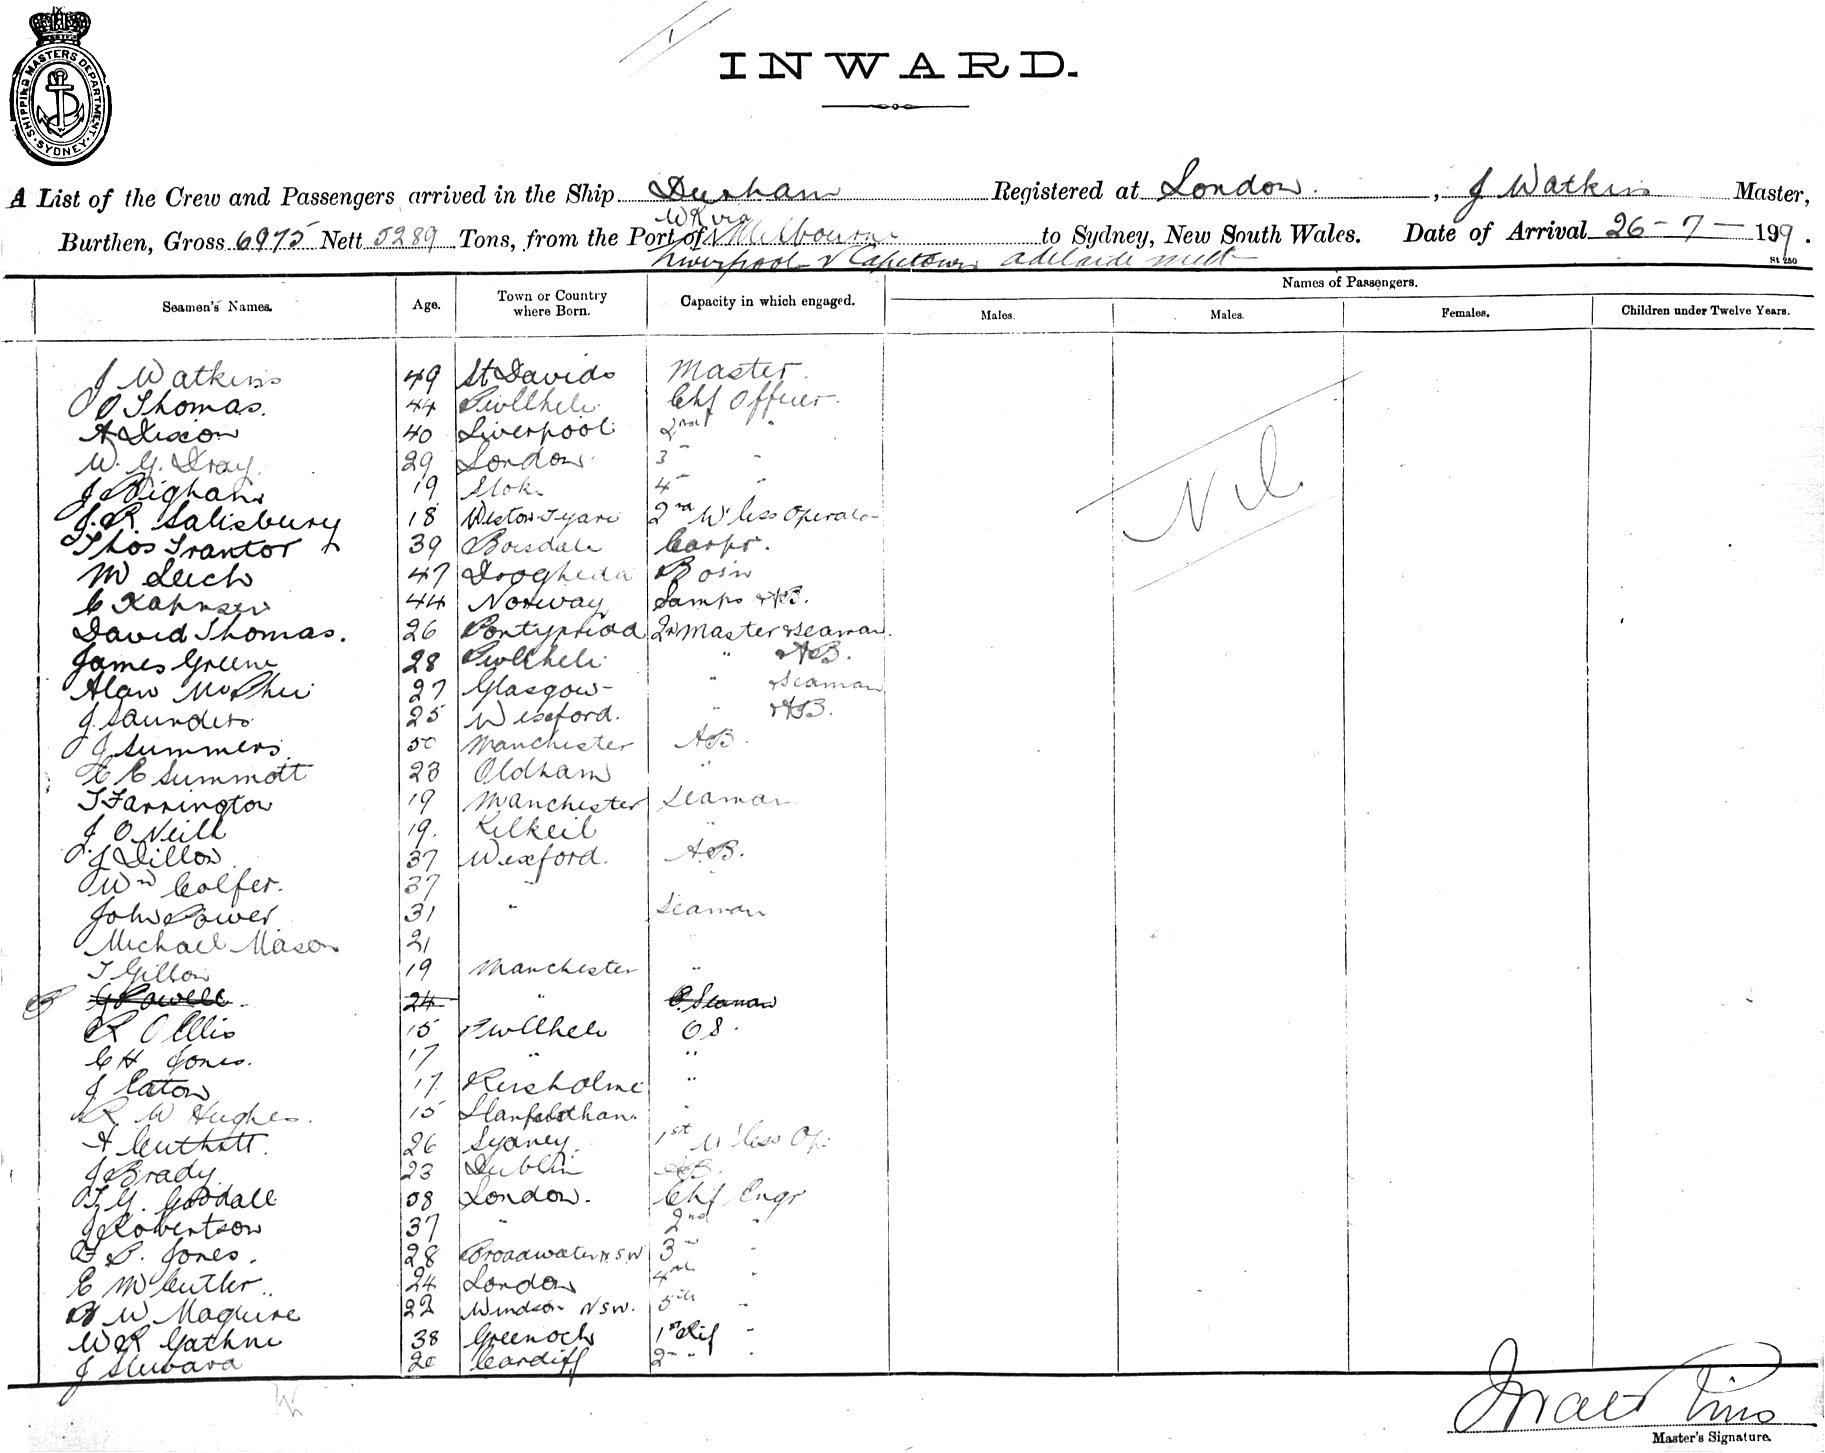 SHIPPING MASTERS DEPARTMENT · SYDNEY ·
INWARD.
A List of the Crew and Passengers arrived in the Ship Durham Registered at London. , J Watkins Master,
Burthen, Gross 6975 Nett 5289 Tons, from the Port of Melbourne to Sydney, New South Wales. Date of Arrival 26-7-199.
via
Liverpool & Capetown Adelaide Melb
St 250
Seamen's Names. Age. Town or Country where Born. Capacity in which engaged. Names of Passengers.
Males. Males. Females. Children under Twelve Years.
J Watkins 49 St Davids Master
O Thomas. 44 Pwllheli Chf Officer.
A Dixon 40 Liverpool 2nd "
W. G. Dray 29 London 3 " "
J Bigham 19 Stoke 4 " "
J. R. Salisbury 18 2nd W'less Operator
Thos Trantor 39 Carpr.
M Leech 47 Drogheda Bosn
44 Norway Lamps & AB.
David Thomas. 26 Pontypridd 2nd Master & Seaman
James Greene 28 Pwllheli " & AB.
Alan McPhee 27 Glasgow " & Seaman
J. Saunders 25 Wexford. " & AB.
J Summers 50 Manchester AB.
C E Summott 23 Oldham "
T Farrington 19 Manchester Seaman
J. O Neill 19. Kilkeil "
J Dillon 37 Wexford. A.B.
Wm Colfer. 37 "
John Power 31 " Seaman
Michael Mason 21 "
T Gillon 19 Manchester "
G Powell 24 " O. Seaman
R O Ellis 15 Pwllheli O S.
C H Jones. 17 " "
J Eaton 17 Rusholme "
R W Hughes. 15 "
26 Sydney 1st W'less Op.
J Brady 23 Dublin AB.
T. G. Goodall 58 London. Chf Engr
J Robertson 37 " 2nd "
F P. Jones. 28 Broadwater NSW 3 " "
E M Cutler.. 24 London 4 "
W Maguire 22 Windsor NSW. 5th "
W R 38 Greenock 1st Rif "
J 20 Cardiff 2 " " "
Nil
J Watkins
Master's Signature.